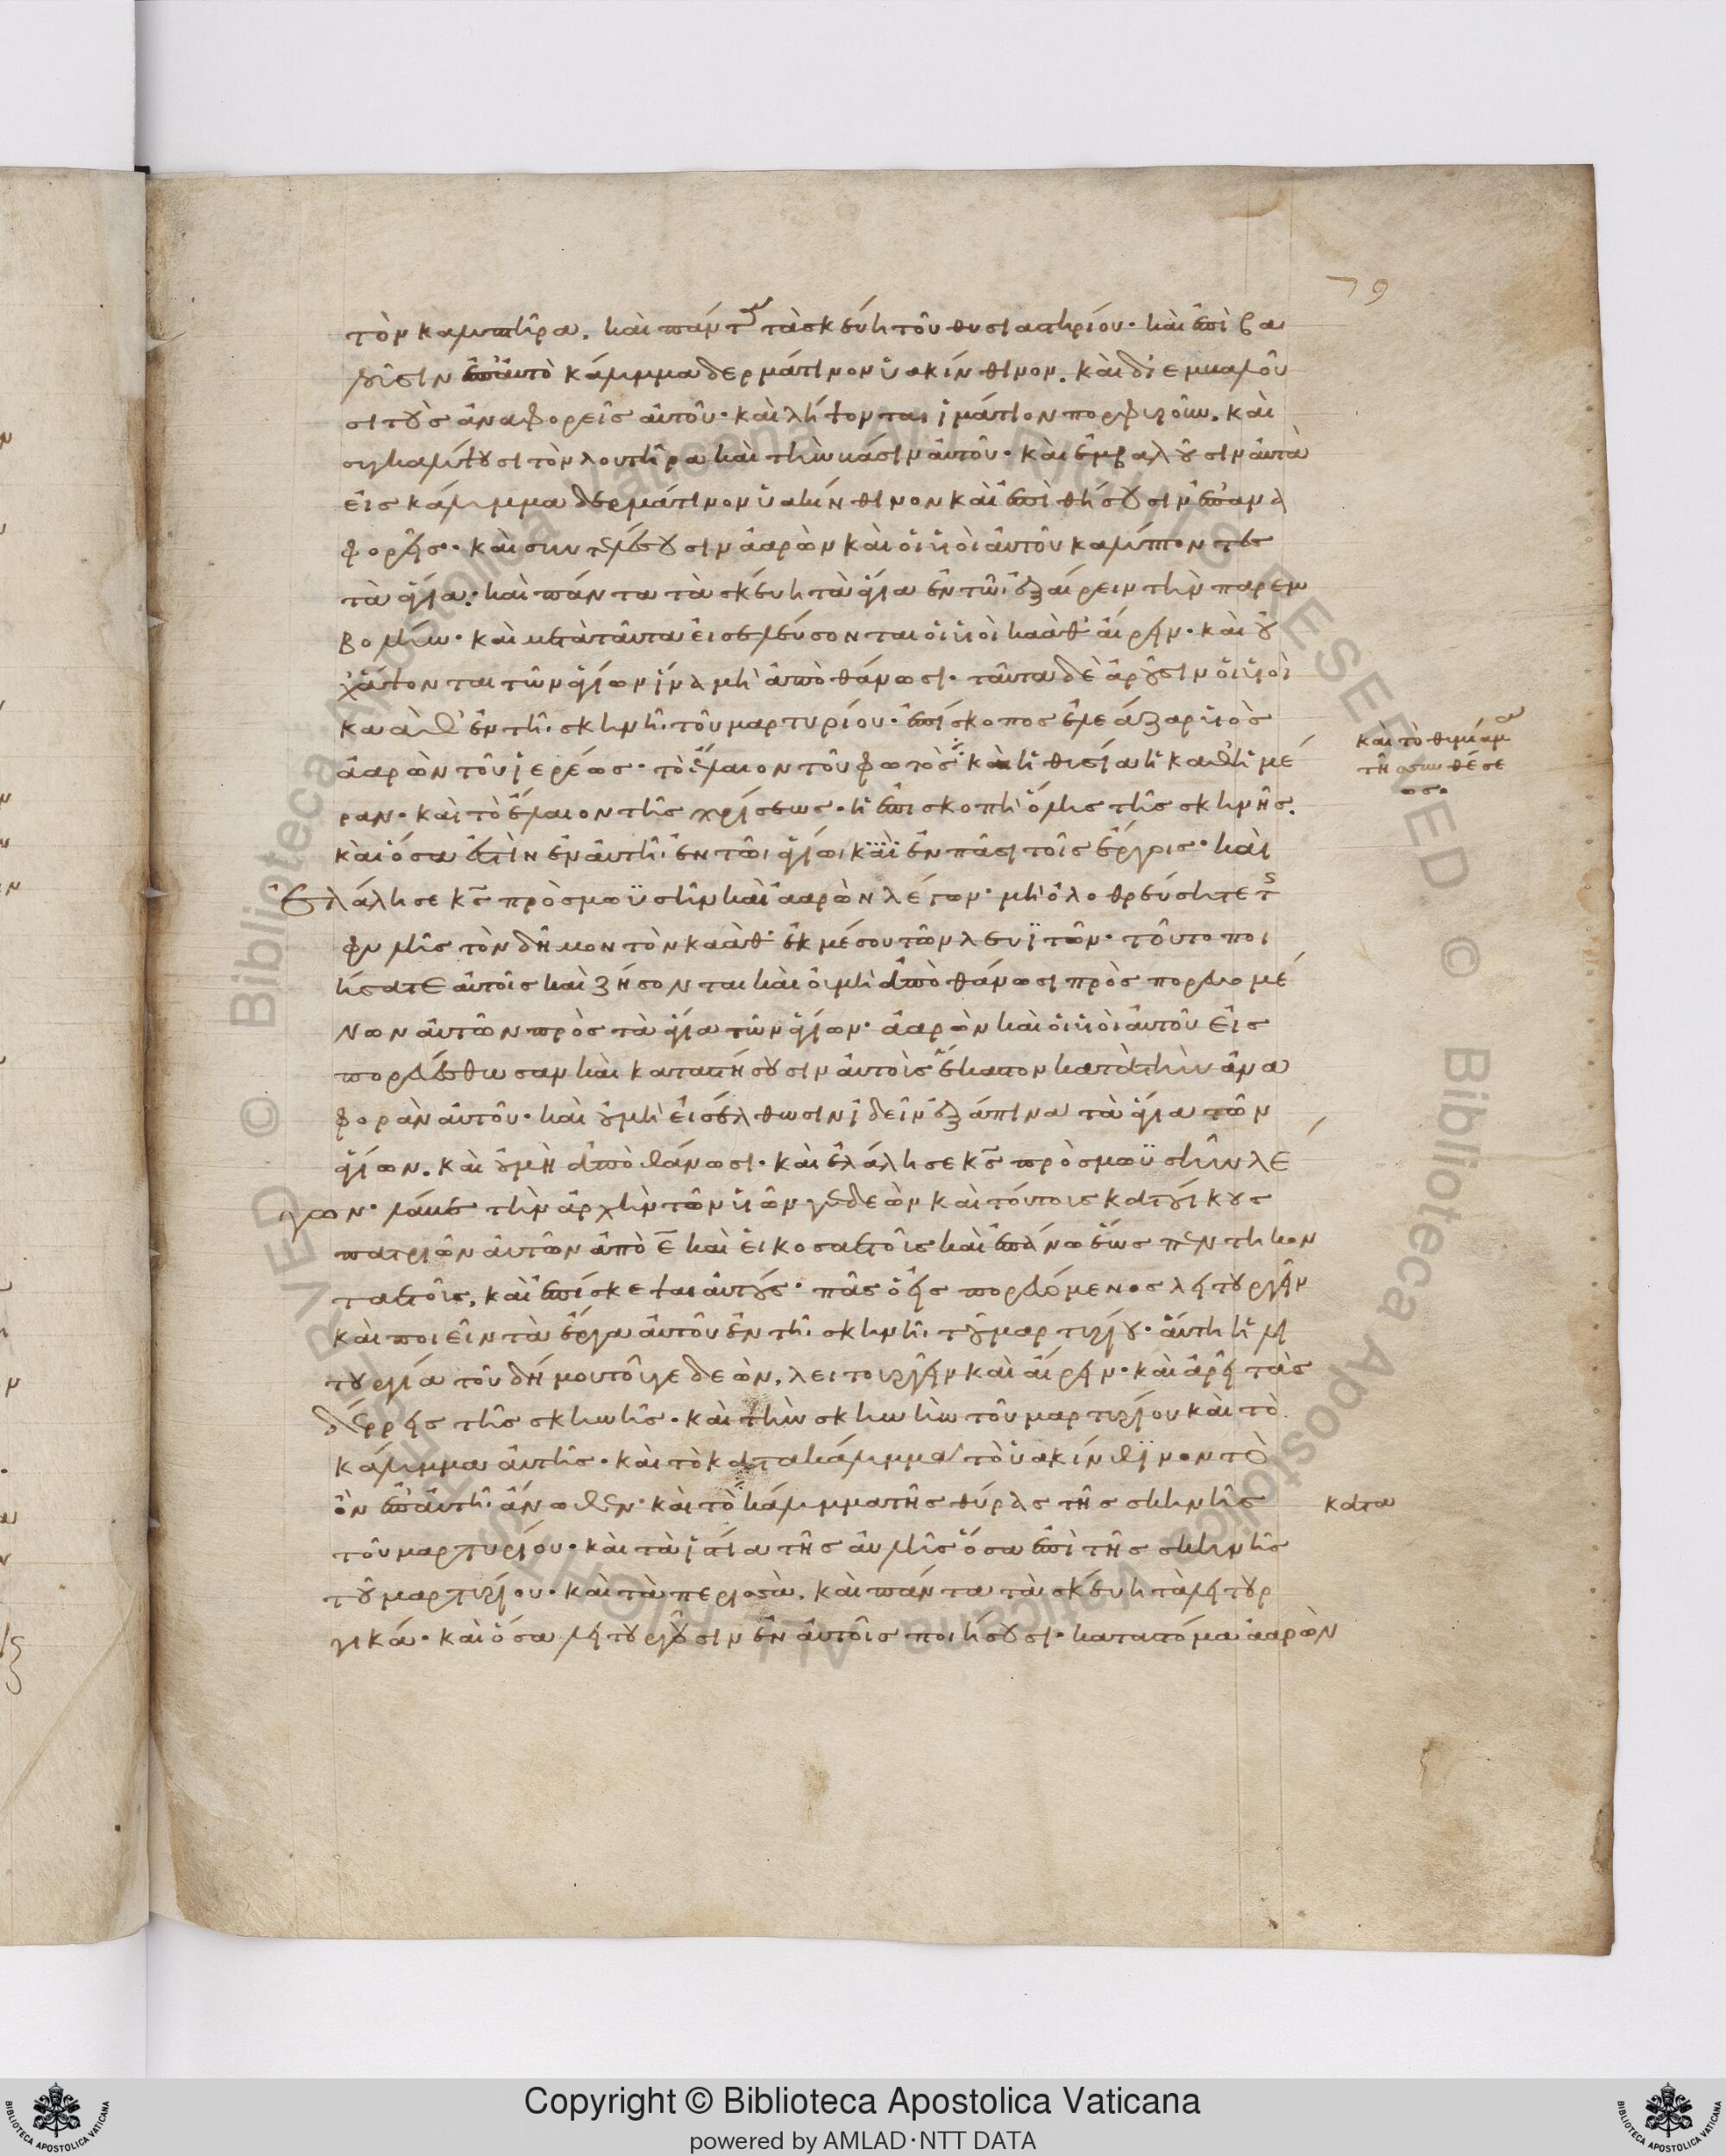 79
τὸν καλυπτῆρα. καὶ πάντα τὰ σκεύη τοῦ θυσιαστηρίου· καὶ ἐπιβα
λοῦσιν ἐπ' αὐτὸ κάλυμμα δερμάτινον ὑακίνθινον. καὶ διεμβαλοῦ
σι τοὺς ἀναφορεῖς αὐτοῦ· καὶ λήψονται ἱμάτιον πορφυροῦν. καὶ
συγκαλύψουσι τὸν λουτῆρα καὶ τὴν βάσιν αὐτοῦ· καὶ ἐμβαλοῦσιν αὐτὰ
εἰς κάλυμμα δερμάτινον ὑακίνθινον καὶ ἐπιθήσουσιν ἐπ' ἀνα
φορεῖς· καὶ συντελέσουσιν ἀαρὼν καὶ οἱ υἱοὶ αὐτοῦ καλύπτοντες
τὰ ἅγια· καὶ πάντα τὰ σκεύη τὰ ἅγια ἐν τῶ ἐξαίρειν τὴν παρεμ
βολήν· καὶ μετὰ ταῦτα εἰσελεύσονται οἱ υἱοὶ καὰθ αἴρειν· καὶ οὐ
χ' ἅψονται τῶν ἁγίων ἵνα μὴ ἀποθάνωσι· ταῦτα δὲ ἀροῦσιν οἱ υἱοὶ
καὰθ ἐν τῆ σκηνῆ τοῦ μαρτυρίου· ἐπίσκοπος ἐλεάζαρ υἱὸς
ἀαρὼν τοῦ ἱερέως· τὸ ἔλαιον τοῦ φωτὸς καὶ ἡ θυσία ἡ καθ' ἡμέ
ραν· καὶ τὸ ἔλαιον τῆς χρίσεως· ἡ ἐπισκοπὴ ὅλης τῆς σκηνῆς.
καὶ ὅσα ἐστὶν ἐν αὐτῆ ἐν τῶι ἁγίωι καὶ ἐν πᾶσι τοῖς ἔργοις· καὶ
ἐλάλησε κς πρὸς μωϋσῆν καὶ ἀαρὼν λέγων· μὴ ὀλοθρεύσητε τ
φυλῆς τὸν δῆμον τὸν καὰθ ἐκ μέσου τῶν λευϊτῶν· τοῦτο ποι
ήσατε αὐτοῖς καὶ ζήσονται καὶ οὐ μὴ ἀποθάνωσι προσπορευομέ
νων αὐτῶν πρὸς τὰ ἅγια τῶν ἁγίων· ἀαρὼν καὶ οἱ υἱοὶ αὐτοῦ εἰσ
πορευέσθωσαν καὶ καταστήσουσιν αὐτοὺς ἕκαστον κατὰ τὴν ἀνα
φορὰν αὐτοῦ· καὶ οὐ μὴ εἰσέλθωσιν ἰδεῖν ἐξάπινα τὰ ἅγια τῶν
ἁγίων. καὶ οὐ μὴ ἀποθάνωσι· καὶ ἐλάλησε κς πρὸς μωϋσῆν λέ
γων· λάβε τὴν ἀρχὴν τῶν υἱῶν γεδεὼν καὶ τούτους κατ' οἴκους
πατριῶν αὐτῶν ἀπὸ ε καὶ εἰκοσαετοῦς καὶ ἐπάνω ἕως πεντηκον
ταετοῦς. καὶ ἐπίσκεψαι αὐτούς· πᾶς ὁ εἰσπορευόμενος λειτουργεῖν
καὶ ποιεῖν τὰ ἔργα αὐτοῦ ἐν τῆ σκηνῆ τοῦ μαρτυρίου· αὕτη ἡ λει
τουργία τοῦ δήμου τοῦ γεδεὼν. λειτουργεῖν καὶ αἴρειν· καὶ ἀρεῖ τὰς
δέρρεις τῆς σκηνῆς· καὶ τὴν σκηνὴν τοῦ μαρτυρίου καὶ τὸ
κάλυμμα αὐτῆς· καὶ τὸ κατακάλυμμα τὸ ὑακίνθϊνον τὸ
ὂν ἐπ' αὐτῆ ἄνωθεν· καὶ τὸ κάλυμμα τῆς θύρας τῆς σκηνῆς
τοῦ μαρτυρίου· καὶ τὰ ἱστία τῆς αὐλῆς ὅσα ἐπὶ τῆς σκηνῆς
τοῦ μαρτυρίου· καὶ τὰ περισσὰ. καὶ πάντα τὰ σκεύη τὰ λειτουρ
γικά· καὶ ὅσα λειτουργοῦσιν ἐν αὐτοῖς ποιήσουσι· κατὰ στόμα ἀαρὼν
καὶ τὸ θυμίαμα
τῆς συνθέσε
ως·
κατα
Copyright © Biblioteca Apostolica Vaticana
powered by AMLAD·NTT DATA